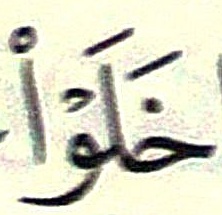 خَلَوْا۟